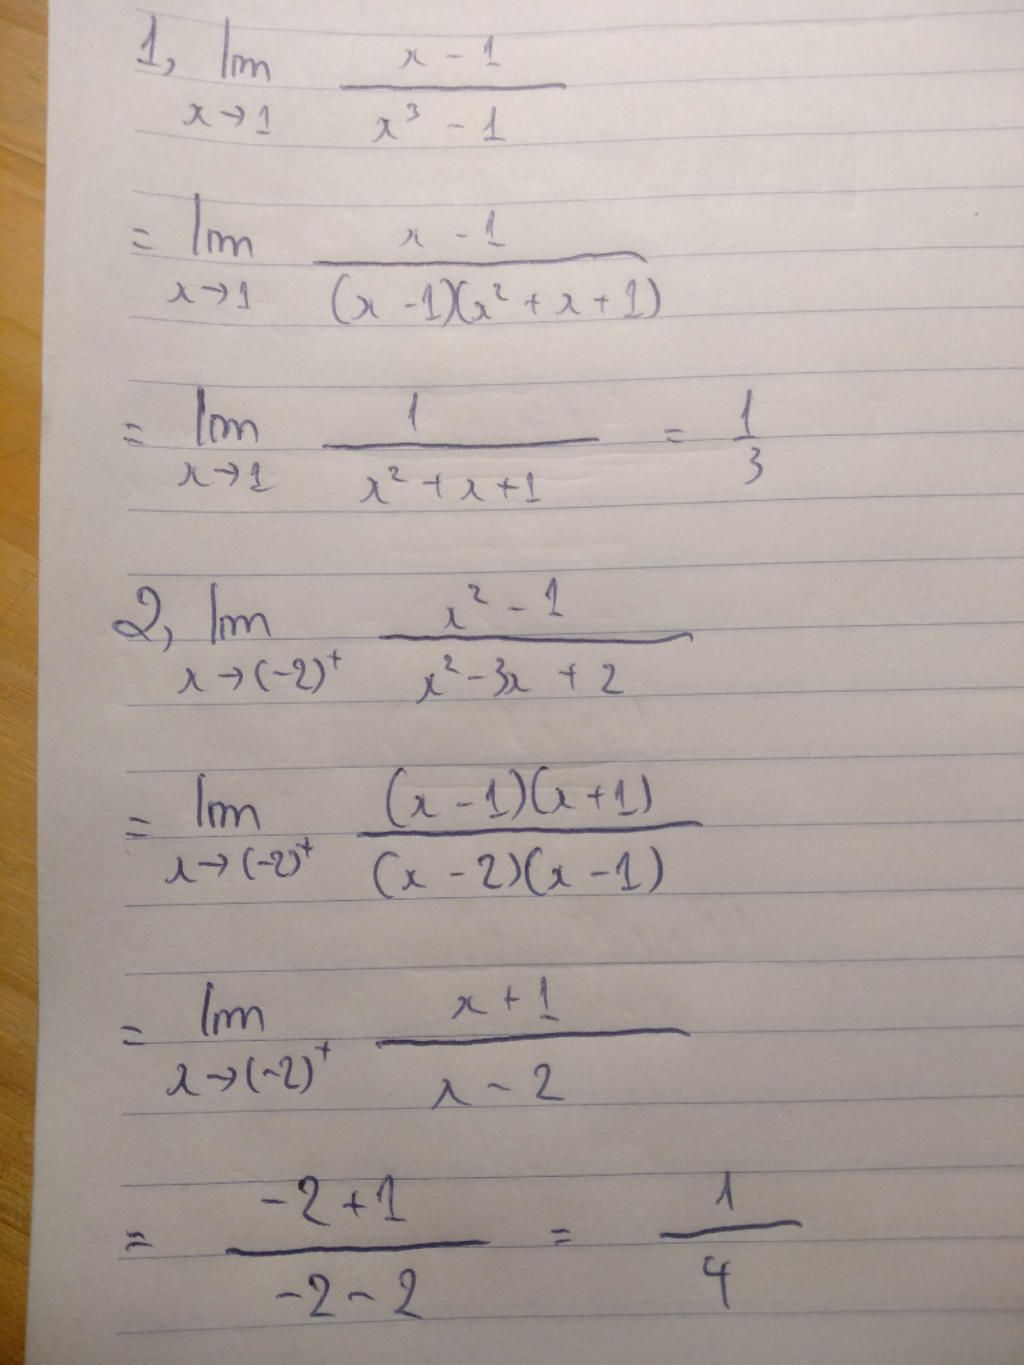 1, lim x→1 (x - 1)/(x³ - 1)
= lim x→1 (x - 1)/((x - 1)(x² + x + 1))
= lim x→1 1/(x² + x + 1) = 1/3
2, lim x→(-2)⁺ (x² - 1)/(x² - 3x + 2)
= lim x→(-2)⁺ ((x - 1)(x + 1))/((x - 2)(x - 1))
= lim x→(-2)⁺ (x + 1)/(x - 2)
= (-2 + 1)/(-2 - 2) = 1/4